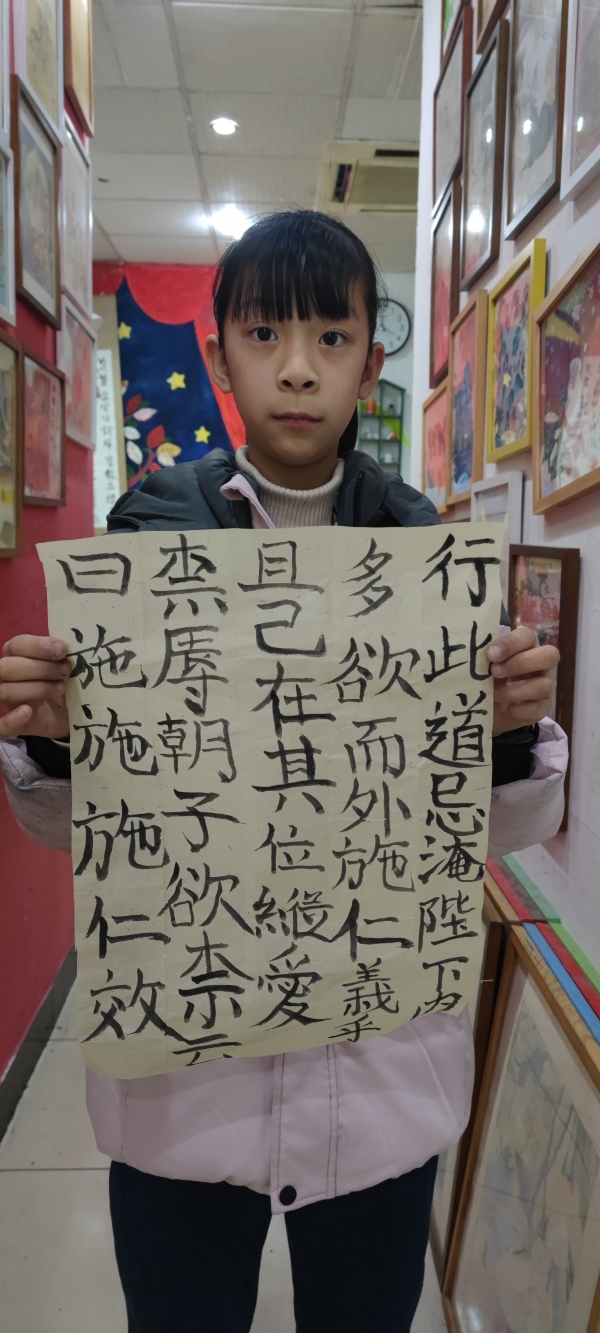 行此道忌淹陛下内
多欲而外施仁義乎
且己在其位縱愛
柰辱朝子欲柰云
曰施施施仁效